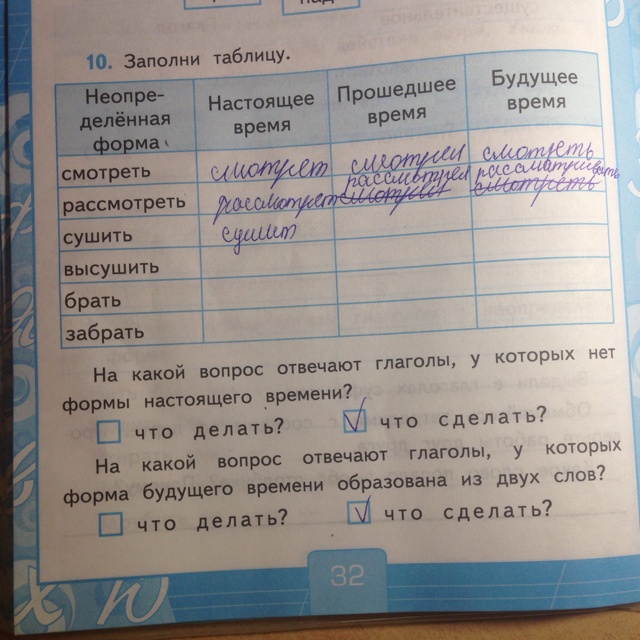 над
10. Заполни таблицу.
Неопре-
делённая
форма
Настоящее
время
Прошедшее
время
Будущее
время
смотреть смотрет смотрел смотреть
рассмотреть рассмотрет рассмотрел смотрел рассматривать смотреть
сушить сушит
высушить
брать
забрать
На какой вопрос отвечают глаголы, у которых нет
формы настоящего времени?
что делать? что сделать?
На какой вопрос отвечают глаголы, у которых
форма будущего времени образована из двух слов?
что делать? что сделать?
32